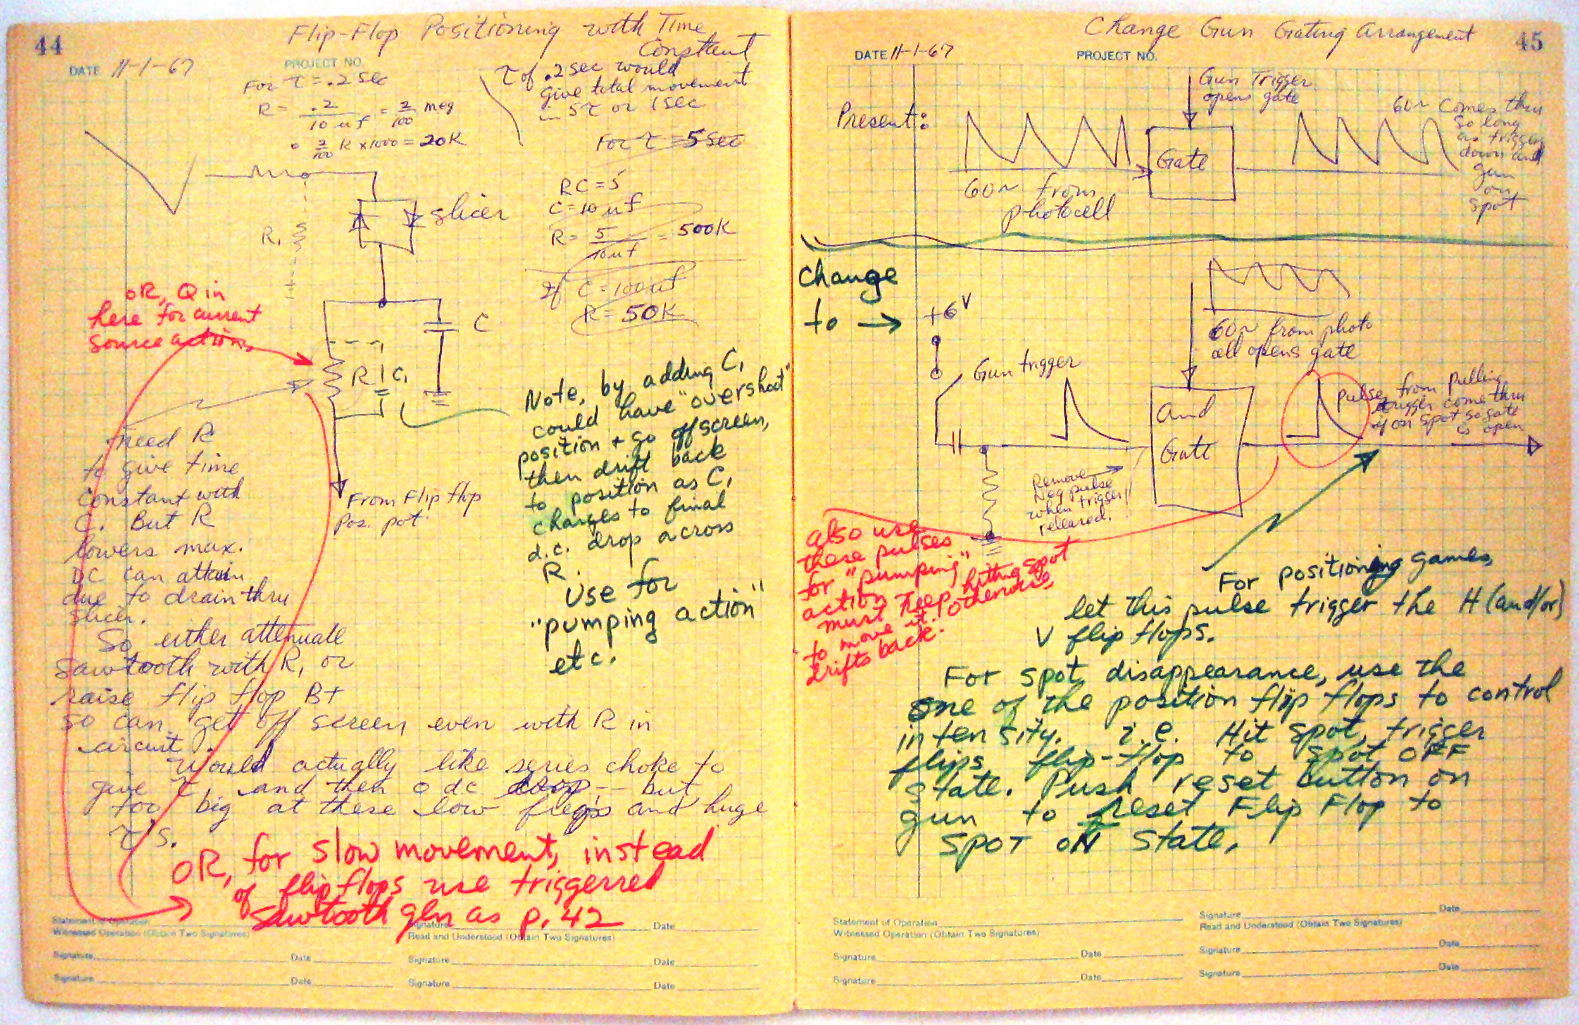 44
Flip-Flop Positioning with Time
Constant
DATE 11-1-67
PROJECT NO.
For τ = .2 sec
R = .2 / 10 uf = 2/100 meg
= 2/100 k x 1000 = 20K
τ of .2 sec would
give total movement
in 5τ or 1 sec
For τ = 5 sec
RC = 5
C = 10 uf
R = 5 / 10uf = 500K
If C = 100uf
R = 50K
slicer
R₁
C
R
C₁
OR, Q in
here for current
source action,
need R
to give time
constant with
C. But R
lowers max.
DC can attain
due to drain thru
slicer.
So, either attenuate
sawtooth with R, or
raise flip flop B+
so can get off screen even with R in
circuit.
Would actually like series choke to
give τ and then 0 dc drop -- but
too big at these low freqs and huge
τ's.
From Flip flop
Pos. pot.
Note, by adding C,
could have "overshoot"
position + go off screen,
then drift back
to position as C,
charges to final
d.c. drop across
R.
Use for
"pumping action"
etc.
OR, for slow movement, instead
of flip flops use triggerred
Sawtooth gen as p. 42
Statement of Operation
Witnessed Operation (Obtain Two Signatures)
Signature
Date
Read and Understood (Obtain Two Signatures)
Signature
Date
Signature
Date
Signature
Date
Signature
Date
45
Change Gun Gating Arrangement
DATE 11-1-67
PROJECT NO.
Present:
Gun Trigger
opens gate
Gate
60~ from
photocell
60~ comes thru
so long
as trigger
down and
gun
on
spot
Change
to →
+6V
Gun trigger
60~ from photo
cell opens gate
And
Gate
Pulse from Pulling
trigger come thru
if on spot so gate
is open
Remove
Neg pulse
when trigger
released.
also use
these pulses
for "pumping"
action
must keep hitting spot
to move it. Otherwise,
drifts back.
For positioning games,
let this pulse trigger the H (and/or)
V flip flops.
For spot disappearance, use the
one of the position flip flops to control
intensity. i.e. Hit spot, trigger
flips flip-flop to spot OFF
state. Push reset button on
gun to reset Flip Flop to
SPOT ON State.
Statement of Operation
Witnessed Operation (Obtain Two Signatures)
Signature
Date
Read and Understood (Obtain Two Signatures)
Signature
Date
Signature
Date
Signature
Date
Signature
Date